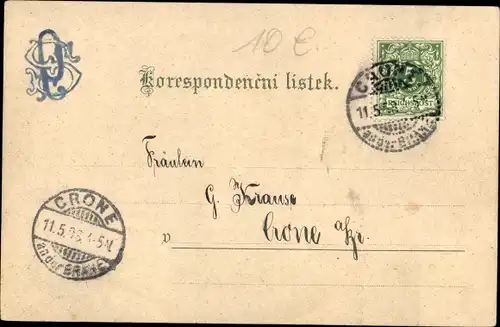 10 €
Korespondenční lístek.
CRONE
11.5.98.4-5N
an der BRAHE
Fräulein
G. Krause
Crone a/Br.
v
CRONE
11.5.98.4-5N
an der BRAHE